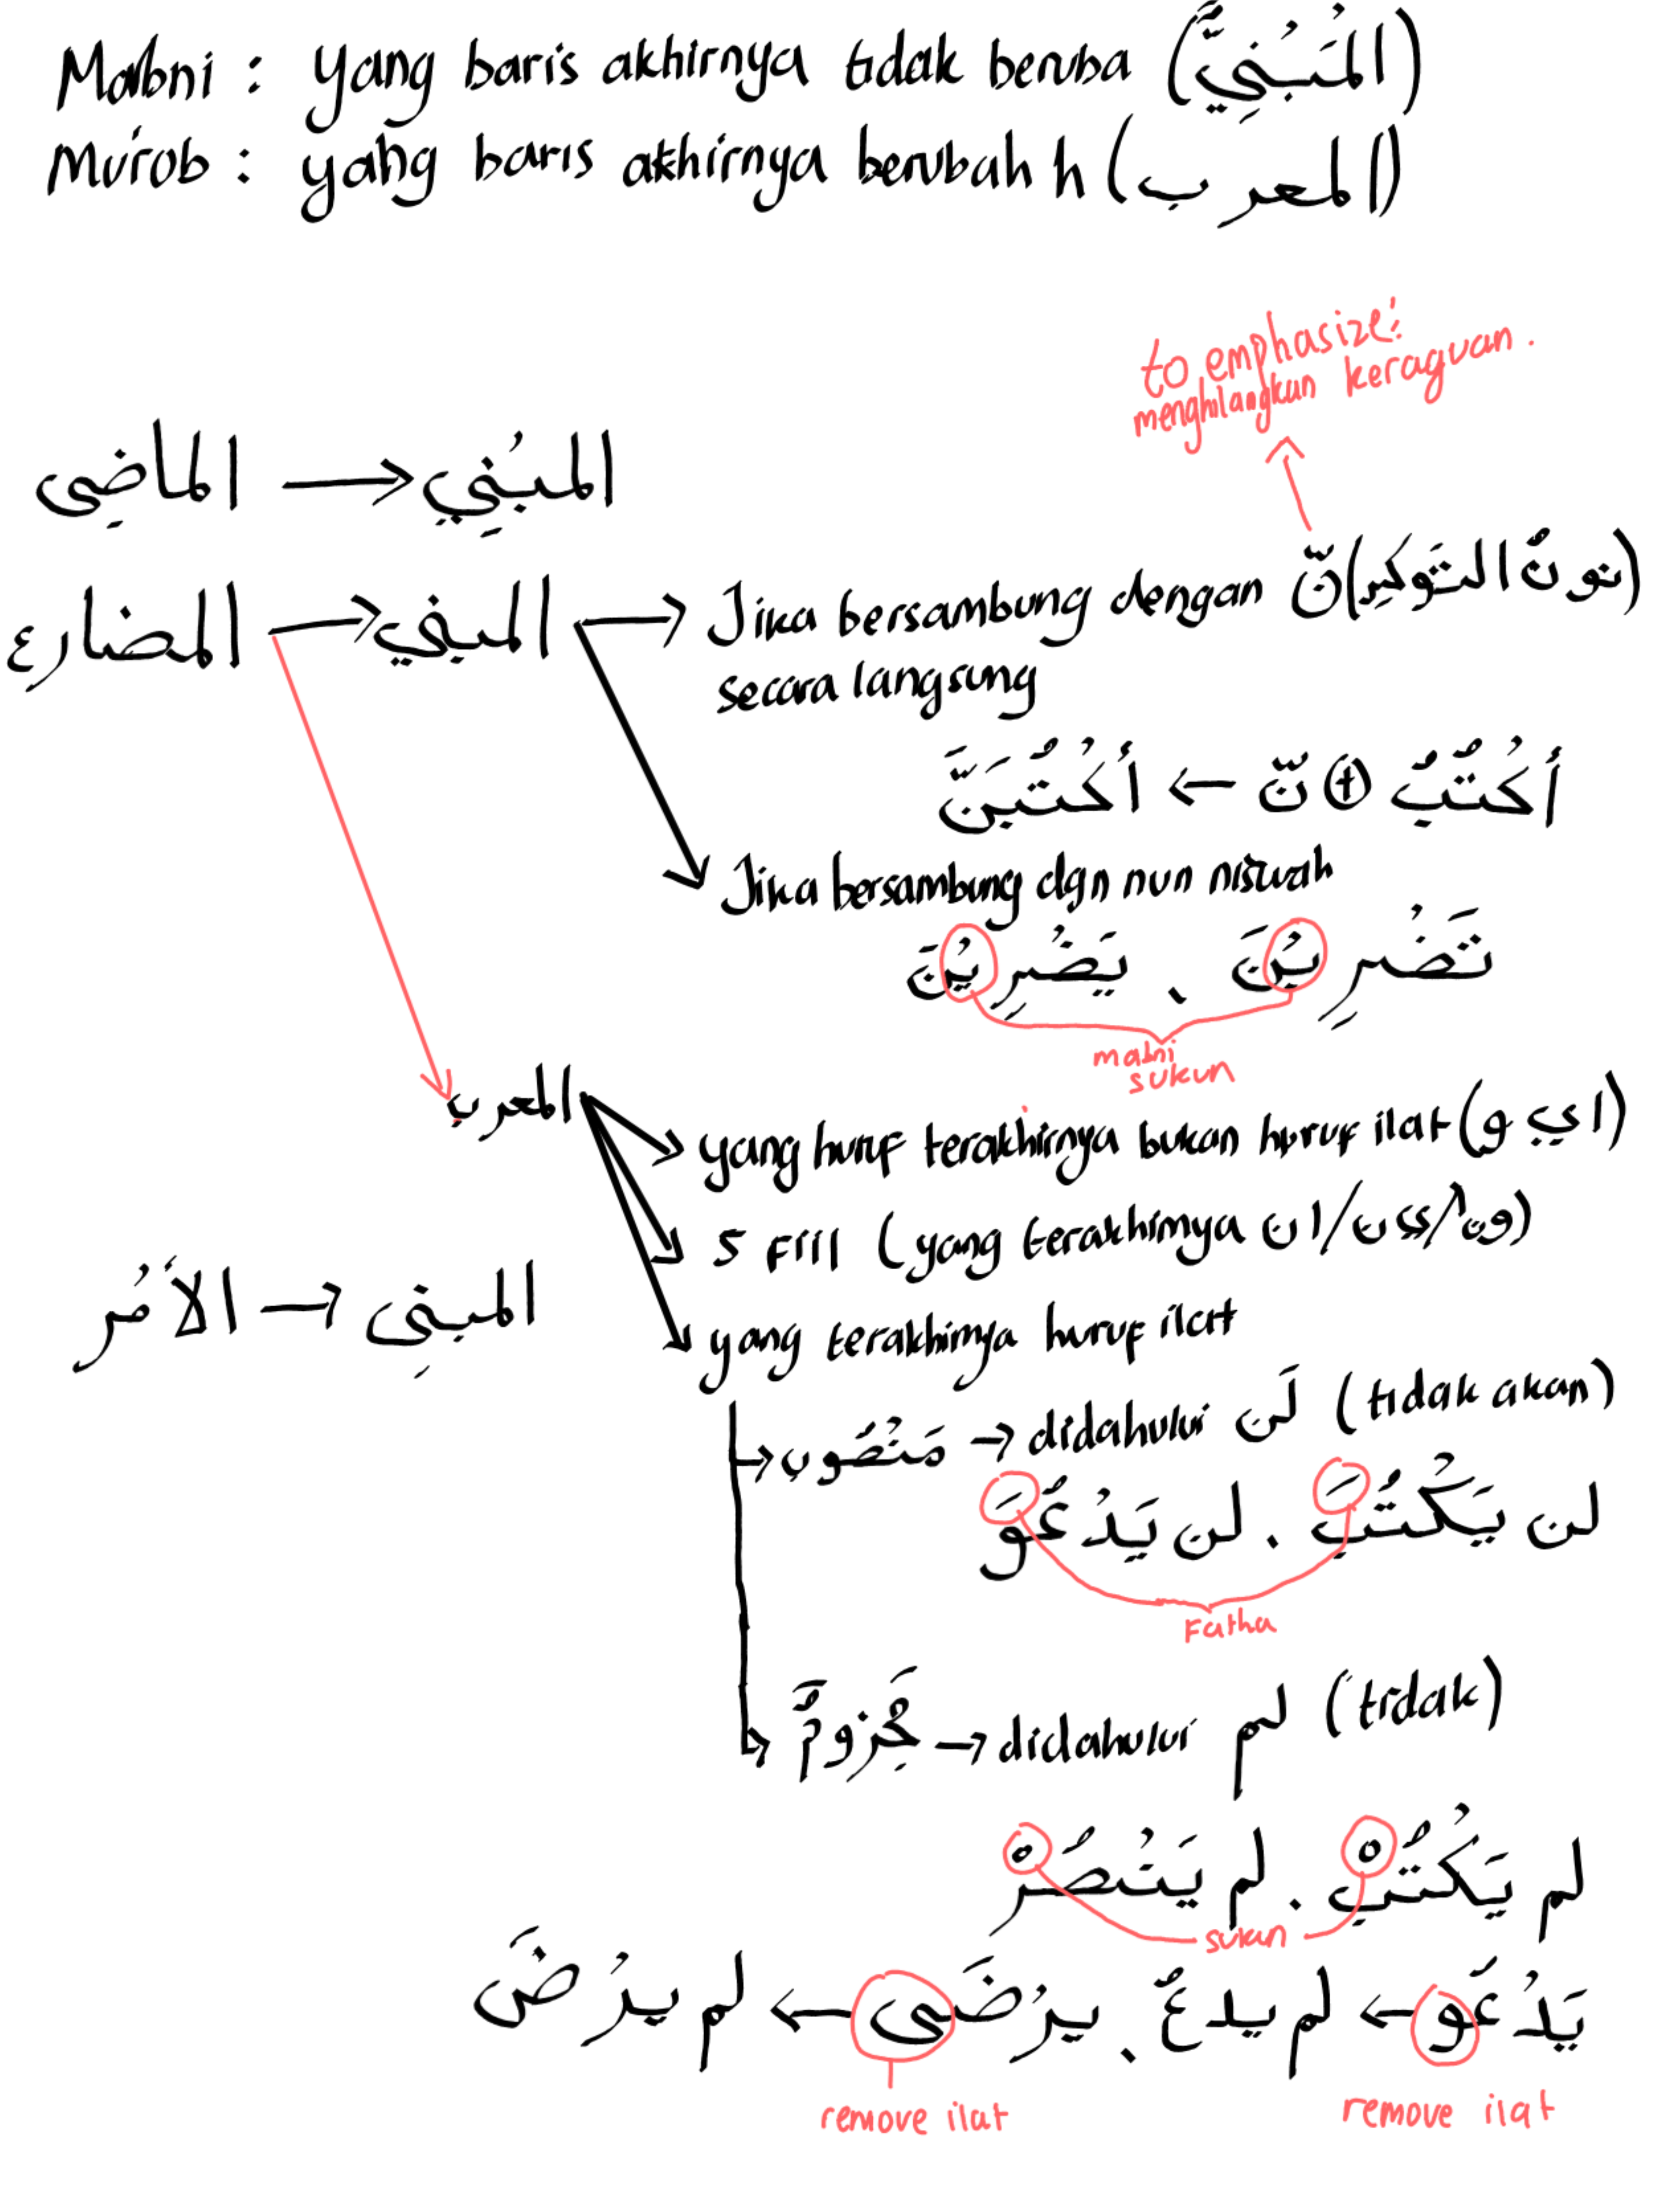 Mabni : yang baris akhirnya tidak beruba (المَبْنِيَّ)
Mu'rob : yang baris akhirnya berubah h (المعرب)
to emphasize:
menghilangkan keraguan.
الماضِى → المبْنِي
المضارع → المبني → Jika bersambung dengan نّ (نونُ التوكيد)
secara langsung
أكْتُبُ + نّ ← أكْتُبَنَّ
Jika bersambung dgn nun niswah
تَضْرِبْنَ . يَضْرِبْنَ
mabni
sukun
المعرب
yang huruf terakhirnya bukan huruf ilat (ا ي و)
5 Fiil (yang terakhirnya ان/ين/ون)
الأمْر → المبنِى
yang terakhirnya huruf ilat
مَنْصُوب → didahului لَن (tidak akan)
لن يَكْتُبَ . لن يَدْعُوَ
Fatha
مَجْزومٌ → didahului لم (tidak)
لم يَكْتُبْ . لم يَنْصُرْ
sukun
يَدْعُو ← لم يدعُ . يرْضَى ← لم يرْضَ
remove ilat
remove ilat